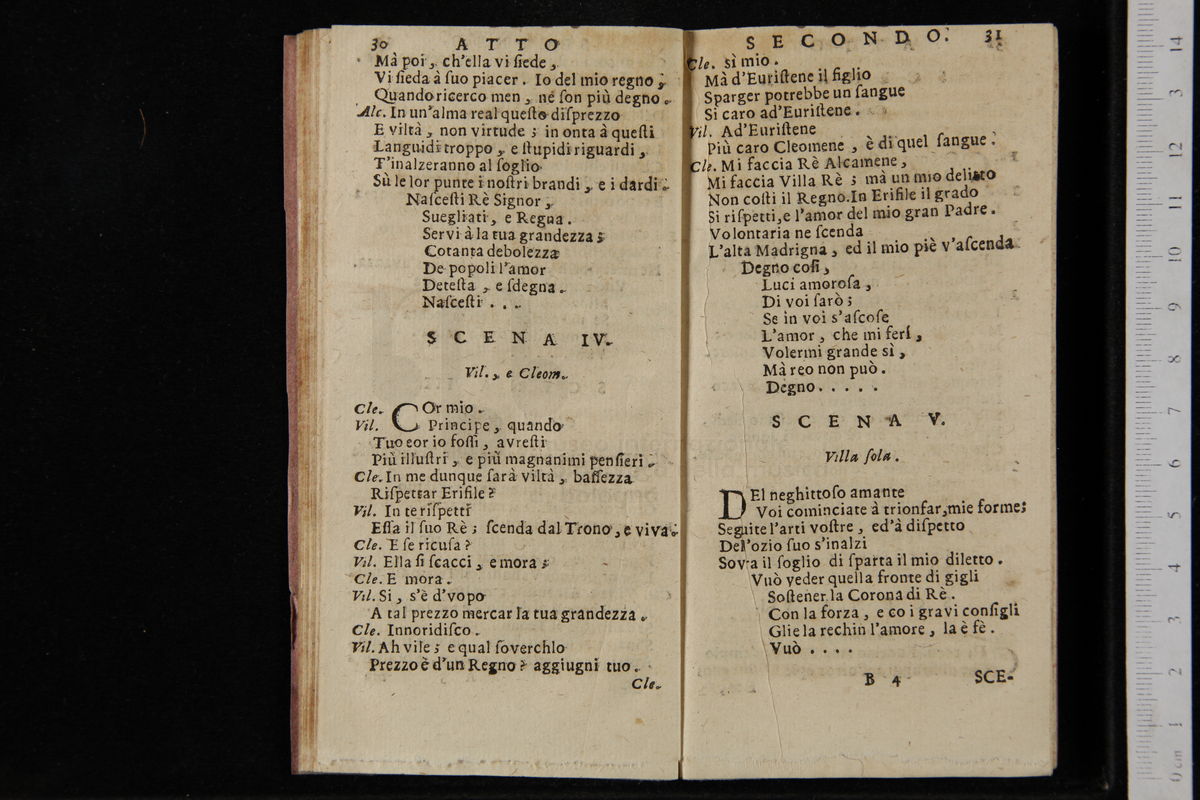 30 ATTO
Mà poi, ch'ella vi ſiede,
Vi ſieda á ſuo piacer. Io del mio regno;
Quando ricerco men, né ſon più degno.
Alc. In un'alma real queſto diſprezzo
E viltà, non virtude; in onta à queſti
Languidi troppo, e ſtupidi riguardi,
T'inalzeranno al ſoglio
Sù le lor punte i noſtri brandi, e i dardi.
Naſceſti Rè Signor,
Suegliati, e Regna.
Servi à la tua grandezza;
Cotanta debolezza
De popoli l'amor
Deteſta, e ſdegna.
Naſceſti . . .
SCENA IV.
Vil., e Cleom.
Cle. COr mio.
Vil. Principe, quando
Tuo cor io foſſi, avreſti
Più illuſtri, e più magnanimi penſieri.
Cle. In me dunque ſarà viltà, baſſezza
Riſpettar Erifile?
Vil. In te riſpetti
Eſſa il ſuo Rè; ſcenda dal Trono, e viva.
Cle. E ſe ricuſa?
Vil. Ella ſi ſcacci, e mora;
Cle. E mora.
Vil. Si, s'è d'vopo
A tal prezzo mercar la tua grandezza.
Cle. Innoridiſco.
Vil. Ah vile; e qual ſoverchio
Prezzo è d'un Regno? aggiugni tuo.
Cle.
SECONDO. 31
Cle. sì mio.
Mà d'Euriſtene il figlio
Sparger potrebbe un ſangue
Si caro ad'Euriſtene.
Vil. Ad'Euriſtene
Più caro Cleomene, è di quel ſangue.
Cle. Mi faccia Rè Alcamene,
Mi faccia Villa Rè; mà un mio delitto
Non coſti il Regno. In Erifile il grado
Si riſpetti, e l'amor del mio gran Padre.
Volontaria ne ſcenda
L'alta Madrigna, ed il mio piè v'aſcenda.
Degno coſi,
Luci amoroſa,
Di voi ſarò;
Se in voi s'aſcoſe
L'amor, che mi ferì,
Volermi grande sì,
Mà reo non può.
Degno . . . . .
SCENA V.
Villa ſola.
DEl neghittoſo amante
Voi cominciate à trionfar, mie forme;
Seguite l'arti voſtre, ed'à diſpetto
Del'ozio ſuo s'inalzi
Sovra il ſoglio di ſparta il mio diletto.
Vuò veder quella fronte di gigli
Soſtener la Corona di Rè.
Con la forza, e co i gravi conſigli
Glie la rechin l'amore, la è fè.
Vuò . . . .
B 4 SCE-